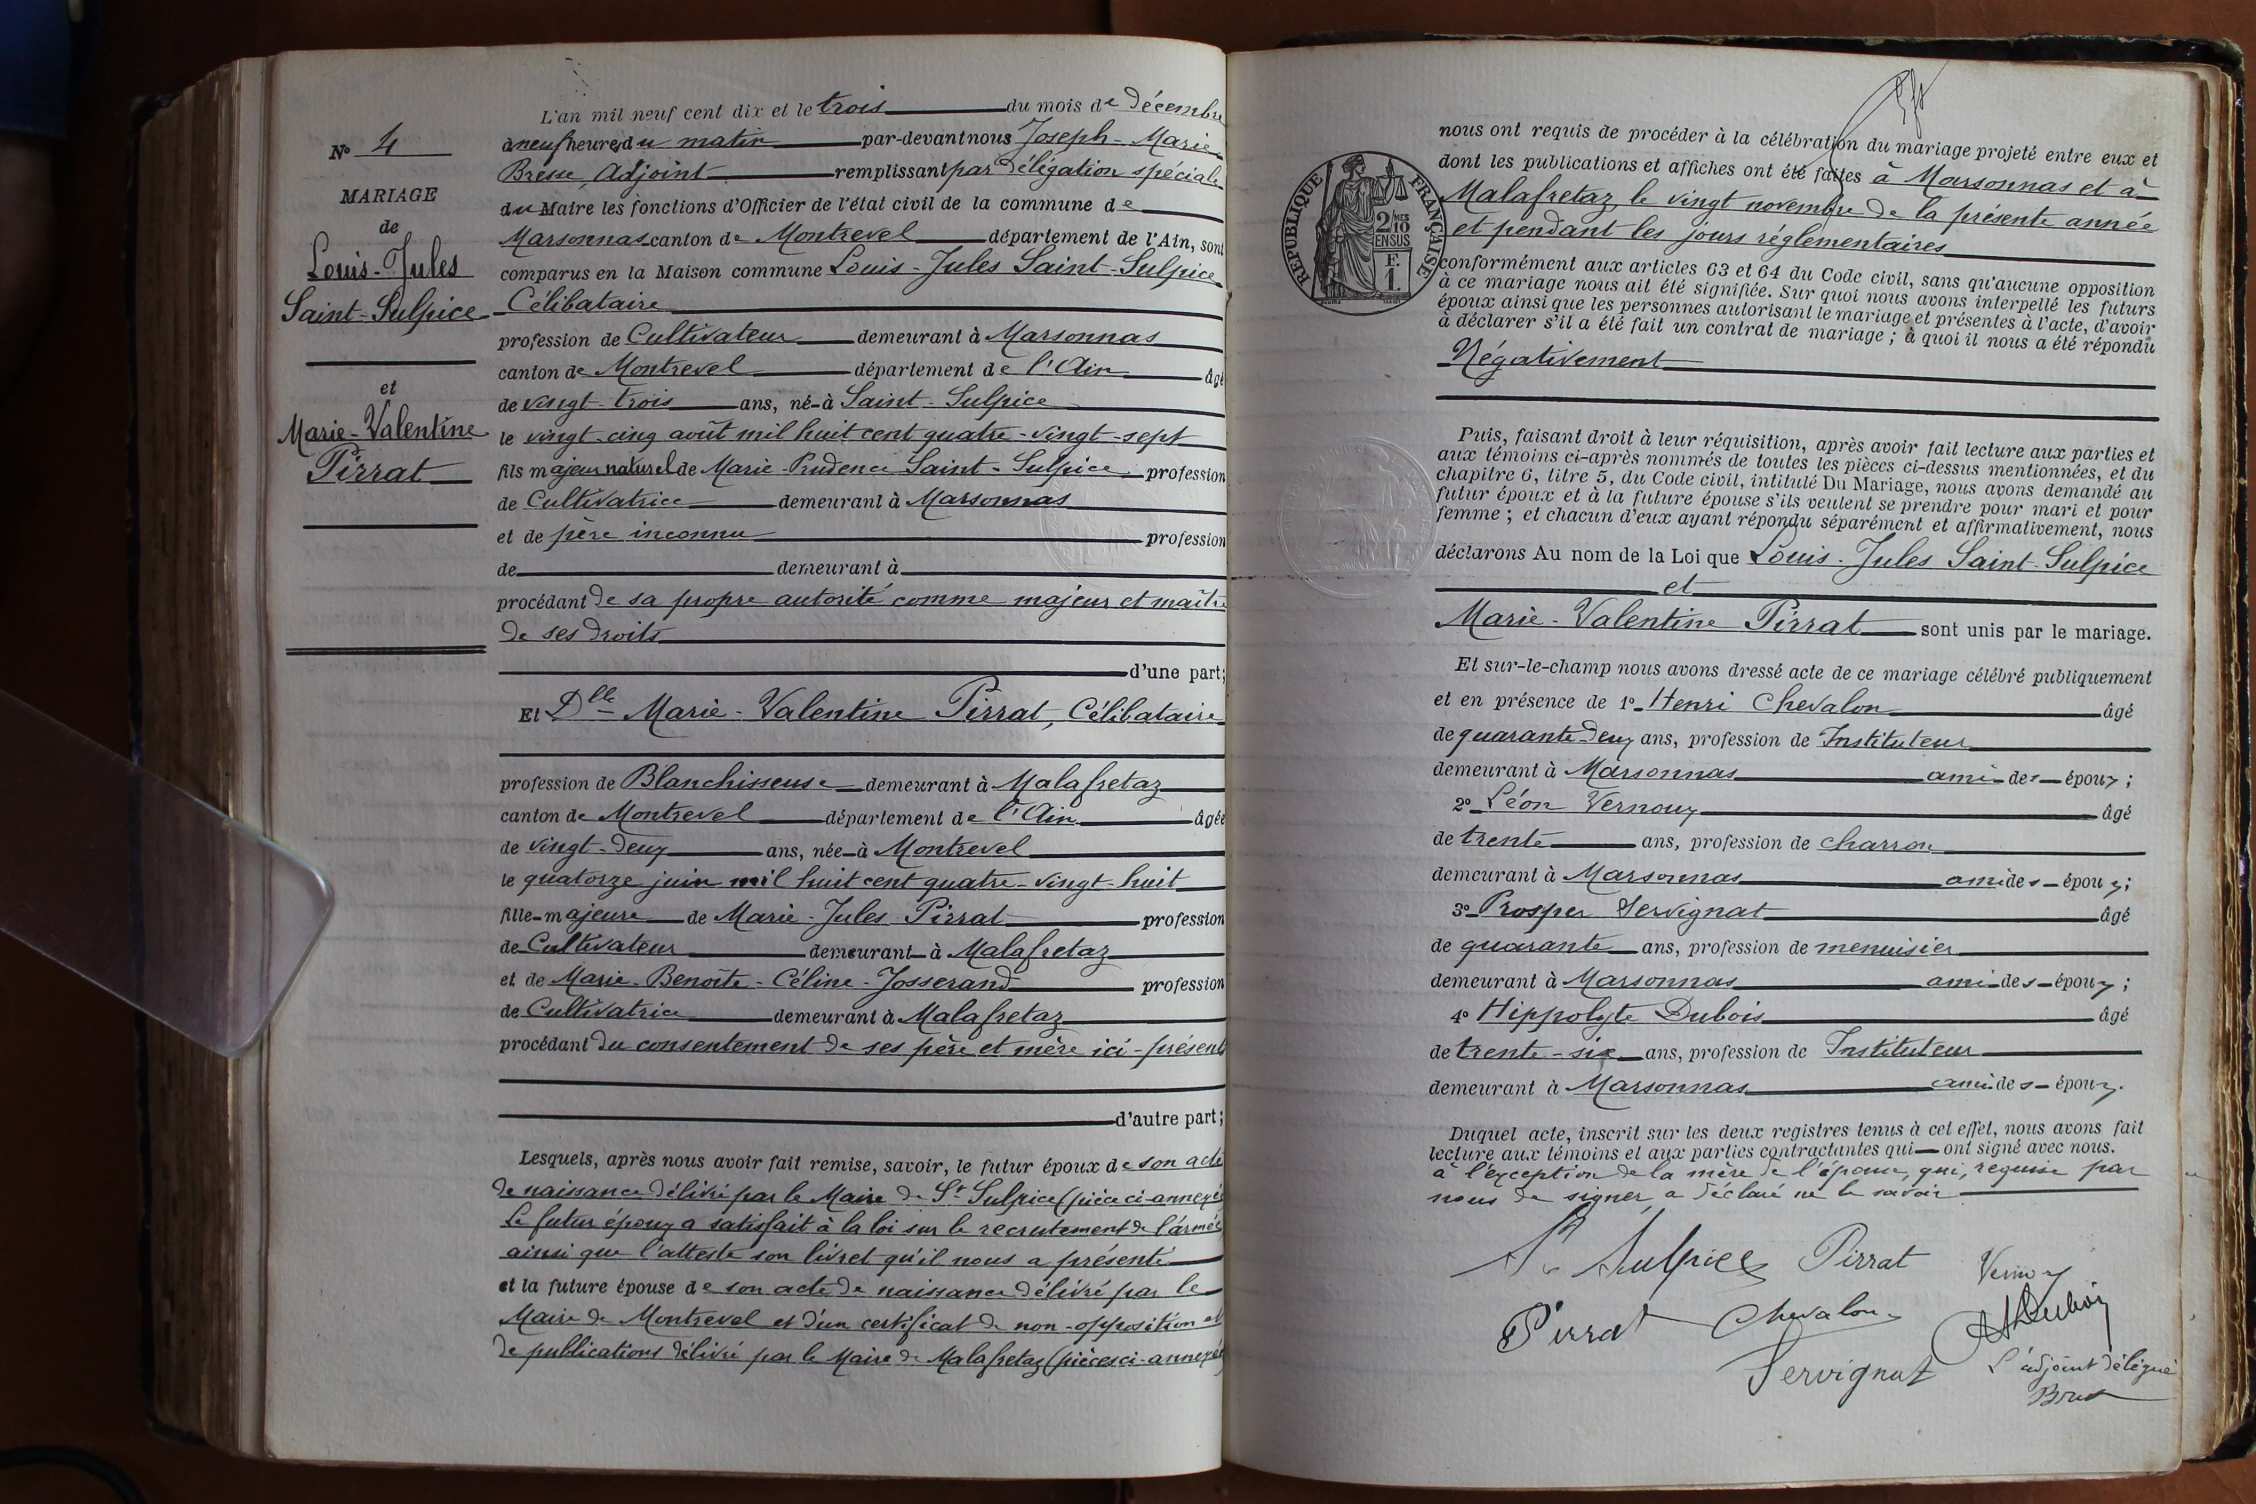 N° 4
MARIAGE
de
Louis-Jules
Saint-Sulpice
et
Marie-Valentine
Pirrat
L'an mil neuf cent dix et le trois du mois de Décembre
à neuf heures du matin par-devant nous Joseph-Marie
Bresse, Adjoint remplissant par Délégation spéciale
du Maire les fonctions d'Officier de l'état civil de la commune de
Marsonnas canton de Montrevel département de l'Ain, sont
comparus en la Maison commune Louis-Jules Saint-Sulpice
Célibataire
profession de Cultivateur demeurant à Marsonnas
canton de Montrevel département de l'Ain âgé
de vingt-trois ans, né à Saint-Sulpice
le vingt-cinq août mil huit cent quatre-vingt-sept
fils majeur naturel de Marie-Prudence Saint-Sulpice profession
de Cultivatrice demeurant à Marsonnas
et de père inconnu profession
de demeurant à
procédant de sa propre autorité comme majeur et maître
de ses droits
d'une part;
Et Dlle Marie-Valentine Pirrat, Célibataire
profession de Blanchisseuse demeurant à Malafretaz
canton de Montrevel département de l'Ain âgée
de vingt-deux ans, née à Montrevel
le quatorze juin mil huit cent quatre-vingt-huit
fille majeure de Marie-Jules Pirrat profession
de Cultivateur demeurant à Malafretaz
et de Marie-Benoîte-Céline-Josserand profession
de Cultivatrice demeurant à Malafretaz
procédant du consentement de ses père et mère ici-présents
d'autre part;
Lesquels, après nous avoir fait remise, savoir, le futur époux de son acte
de naissance délivré par le Maire de St Sulpice (pièce ci-annexée)
Le futur époux a satisfait à la loi sur le recrutement de l'armée
ainsi que l'atteste son livret qu'il nous a présenté
et la future épouse de son acte de naissance délivré par le
Maire de Montrevel et d'un certificat de non-opposition et
de publications délivré par le Maire de Malafretaz (pièces ci-annexées)
RÉPUBLIQUE FRANÇAISE
2/10 MES
EN SUS
F.
1.
nous ont requis de procéder à la célébration du mariage projeté entre eux et
dont les publications et affiches ont été faites à Marsonnas et à
Malafretaz le vingt novembre de la présente année
et pendant les jours réglementaires
conformément aux articles 63 et 64 du Code civil, sans qu'aucune opposition
à ce mariage nous ait été signifiée. Sur quoi nous avons interpellé les futurs
époux ainsi que les personnes autorisant le mariage et présentes à l'acte, d'avoir
à déclarer s'il a été fait un contrat de mariage ; à quoi il nous a été répondu
Négativement
Puis, faisant droit à leur réquisition, après avoir fait lecture aux parties et
aux témoins ci-après nommés de toutes les pièces ci-dessus mentionnées, et du
chapitre 6, titre 5, du Code civil, intitulé Du Mariage, nous avons demandé au
futur époux et à la future épouse s'ils veulent se prendre pour mari et pour
femme ; et chacun d'eux ayant répondu séparément et affirmativement, nous
déclarons Au nom de la Loi que Louis-Jules Saint-Sulpice
et
Marie-Valentine Pirrat sont unis par le mariage.
Et sur-le-champ nous avons dressé acte de ce mariage célébré publiquement
et en présence de 1° Henri Chevalon âgé
de quarante-deux ans, profession de Instituteur
demeurant à Marsonnas ami des époux ;
2° Léon Vernoux âgé
de trente ans, profession de charron
demeurant à Marsonnas ami des époux ;
3° Prosper Servignat âgé
de quarante ans, profession de menuisier
demeurant à Marsonnas ami des époux ;
4° Hippolyte Dubois âgé
de trente-six ans, profession de Instituteur
demeurant à Marsonnas ami des époux.
Duquel acte, inscrit sur les deux registres tenus à cet effet, nous avons fait
lecture aux témoins et aux parties contractantes qui ont signé avec nous.
à l'exception de la mère de l'épouse, qui, requise par
nous de signer a déclaré ne le savoir
St Sulpice Pirrat Vernoux
Pirrat Chevalon HDubois
Servignat L'adjoint délégué